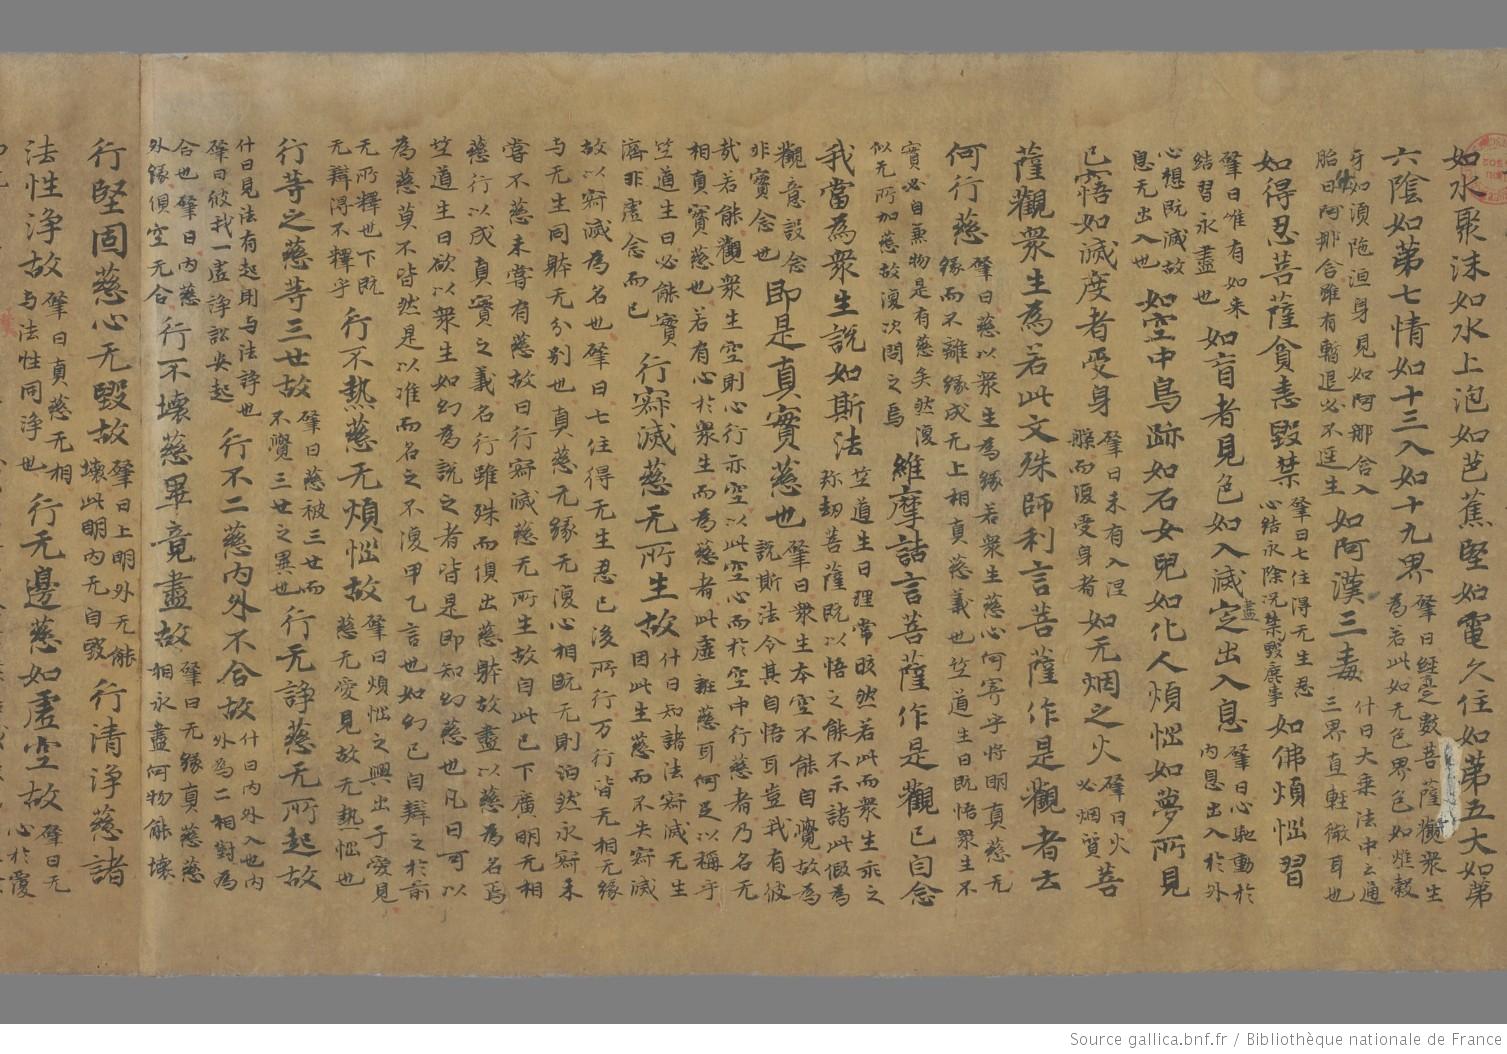 如水聚沫如水上泡如芭蕉堅如電久住如第五大如第
六陰如第七情如十三入如十九界
肇曰經壹之數菩薩觀衆生
為若此如无色界色如燋穀
牙如湏陁洹身見如阿那含入
胎曰阿那含雖有暫退必不迋生
如阿漢三毒
什曰大乗法中云通
三界直輕微耳也
如得忍菩薩貪恚毀禁
肇曰七住得无生忍
心結永除况禁戰麁事
如佛煩惱習
肇曰唯有如来
結習永盡也
如盲者見色如入滅盡定出入息
肇曰心馳動於
内息出入於外
心想既滅故
息无出入也
如空中鳥跡如石女兒如化人煩惱如夢所見
已寤如滅度者受身
肇曰未有入涅
縏而復受身者
如无烟之火
肇曰火
必烟質
菩
薩觀衆生為若此文殊師利言菩薩作是觀者云
何行慈
肇曰慈以衆生為緣若衆生慈心何寄乎将明真慈无
緣而不離緣成无上相真慈義也竺道生曰既悟衆生不
實必自兼物是有慈矣然復
似无所加慈故復次問之焉
維摩詰言菩薩作是觀已自念
我當為衆生說如斯法
竺道生曰理常晈然若此而衆生乖之
弥劫菩薩既以悟之能不示諸此假為
觀意設念
非實念也
即是真實慈也
肇曰衆生本空不能自覺故為
說斯法令其自悟耳豈我有彼
哉若能觀衆生空則心行亦空以此空心而於空中行慈者乃名无
相真實慈也若有心於衆生而為慈者此虛誑慈耳何足以稱乎
竺道生曰必能實
濟非虛念而已
行寂滅慈无所生故
什曰知諸法寂滅无生
因此生慈而不失寂滅
故以寂滅為名也肇曰七住得无生忍已後所行万行皆无相无緣
与无生同躰无分别也真慈无緣无復心相既无則泊然永寂未
嘗不慈未嘗有慈故曰行寂滅慈无所生故自此已下廣明无相
慈行以成真實之義名行雖殊而俱出慈躰故盡以慈為名焉
竺道生曰欲以衆生如幻為說之者皆是即知幻慈也凡曰可以
為慈莫不皆然是以准而名之不復甲乙言也如幻已自辯之於前
无所釋世下既
无辯得不釋乎
行不熱慈无煩惱故
肇曰煩惱之興出于愛見
慈无愛見故无熱惱也
行等之慈等三世故
肇曰慈被三世而
不覺三世之異也
行无諍慈无所起故
什曰見法有起則与法諍也
肇曰彼我一虛諍訟安起
行不二慈内外不合故
什曰内外入也内
外為二相對為
合也肇曰内慈
外緣俱空无合
行不壞慈畢竟盡故
肇曰无緣真慈慈
相永盡何物能壞
行堅固慈心无毀故
肇曰上明外无能
壞此明内无自毀
行清淨慈諸
法性淨故
肇曰真慈无相
与法性同淨也
行无邊慈如虛空故
肇曰无
心於覆
Source gallica.bnf.fr / Bibliothèque nationale de France